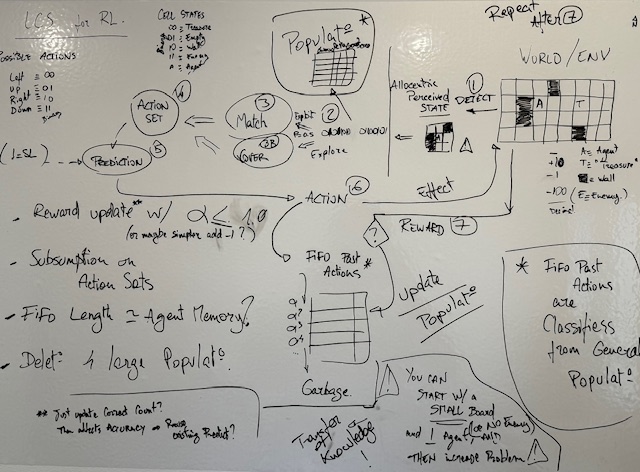 LCS for RL.
POSSIBLE ACTIONS
Left ≡ 00
Up ≡ 01
Right ≡ 10
Down ≡ 11
CELL STATES
00 ≡ Treasure
01 ≡ Empty
10 ≡ Wall
11 ≡ Enemy
A ≡ Agent
Populat° *
Repeat
After 7
WORLD/ENV
A T
1
DETECT
Allocentric
Perceived
STATE
A
!
A ≡ Agent
+10 T ≡ "Treasure"
-1 ≡ Wall
-100 (E ≡ Enemy)
2
Exploit
Explore
3
Match
3B
COVER
4
ACTION
SET
PREDICTION 5
ACTION 6
Effect
REWARD 7
?
- Reward update** w/ α ≤ 1.0
(or maybe simpler add -1?)
- Subsumption on
Action Sets
- FiFo Length ≃ Agent Memory?
- Delet° 4 large Populat°.
** Just update Correct Count?
Then affects ACCURACY ⇒
existing Predict°?
FiFo Past
Actions *
α
α²
α³
α⁴
...
Garbage.
update
Populat°
Transfer
of
Knowledge
!
! YOU CAN
START w/ a
SMALL Board
and 1 Agent (or NO Enemy)
THEN increase Problem !
* FiFo Past
Actions
are
Classifiers
from General
Populat°